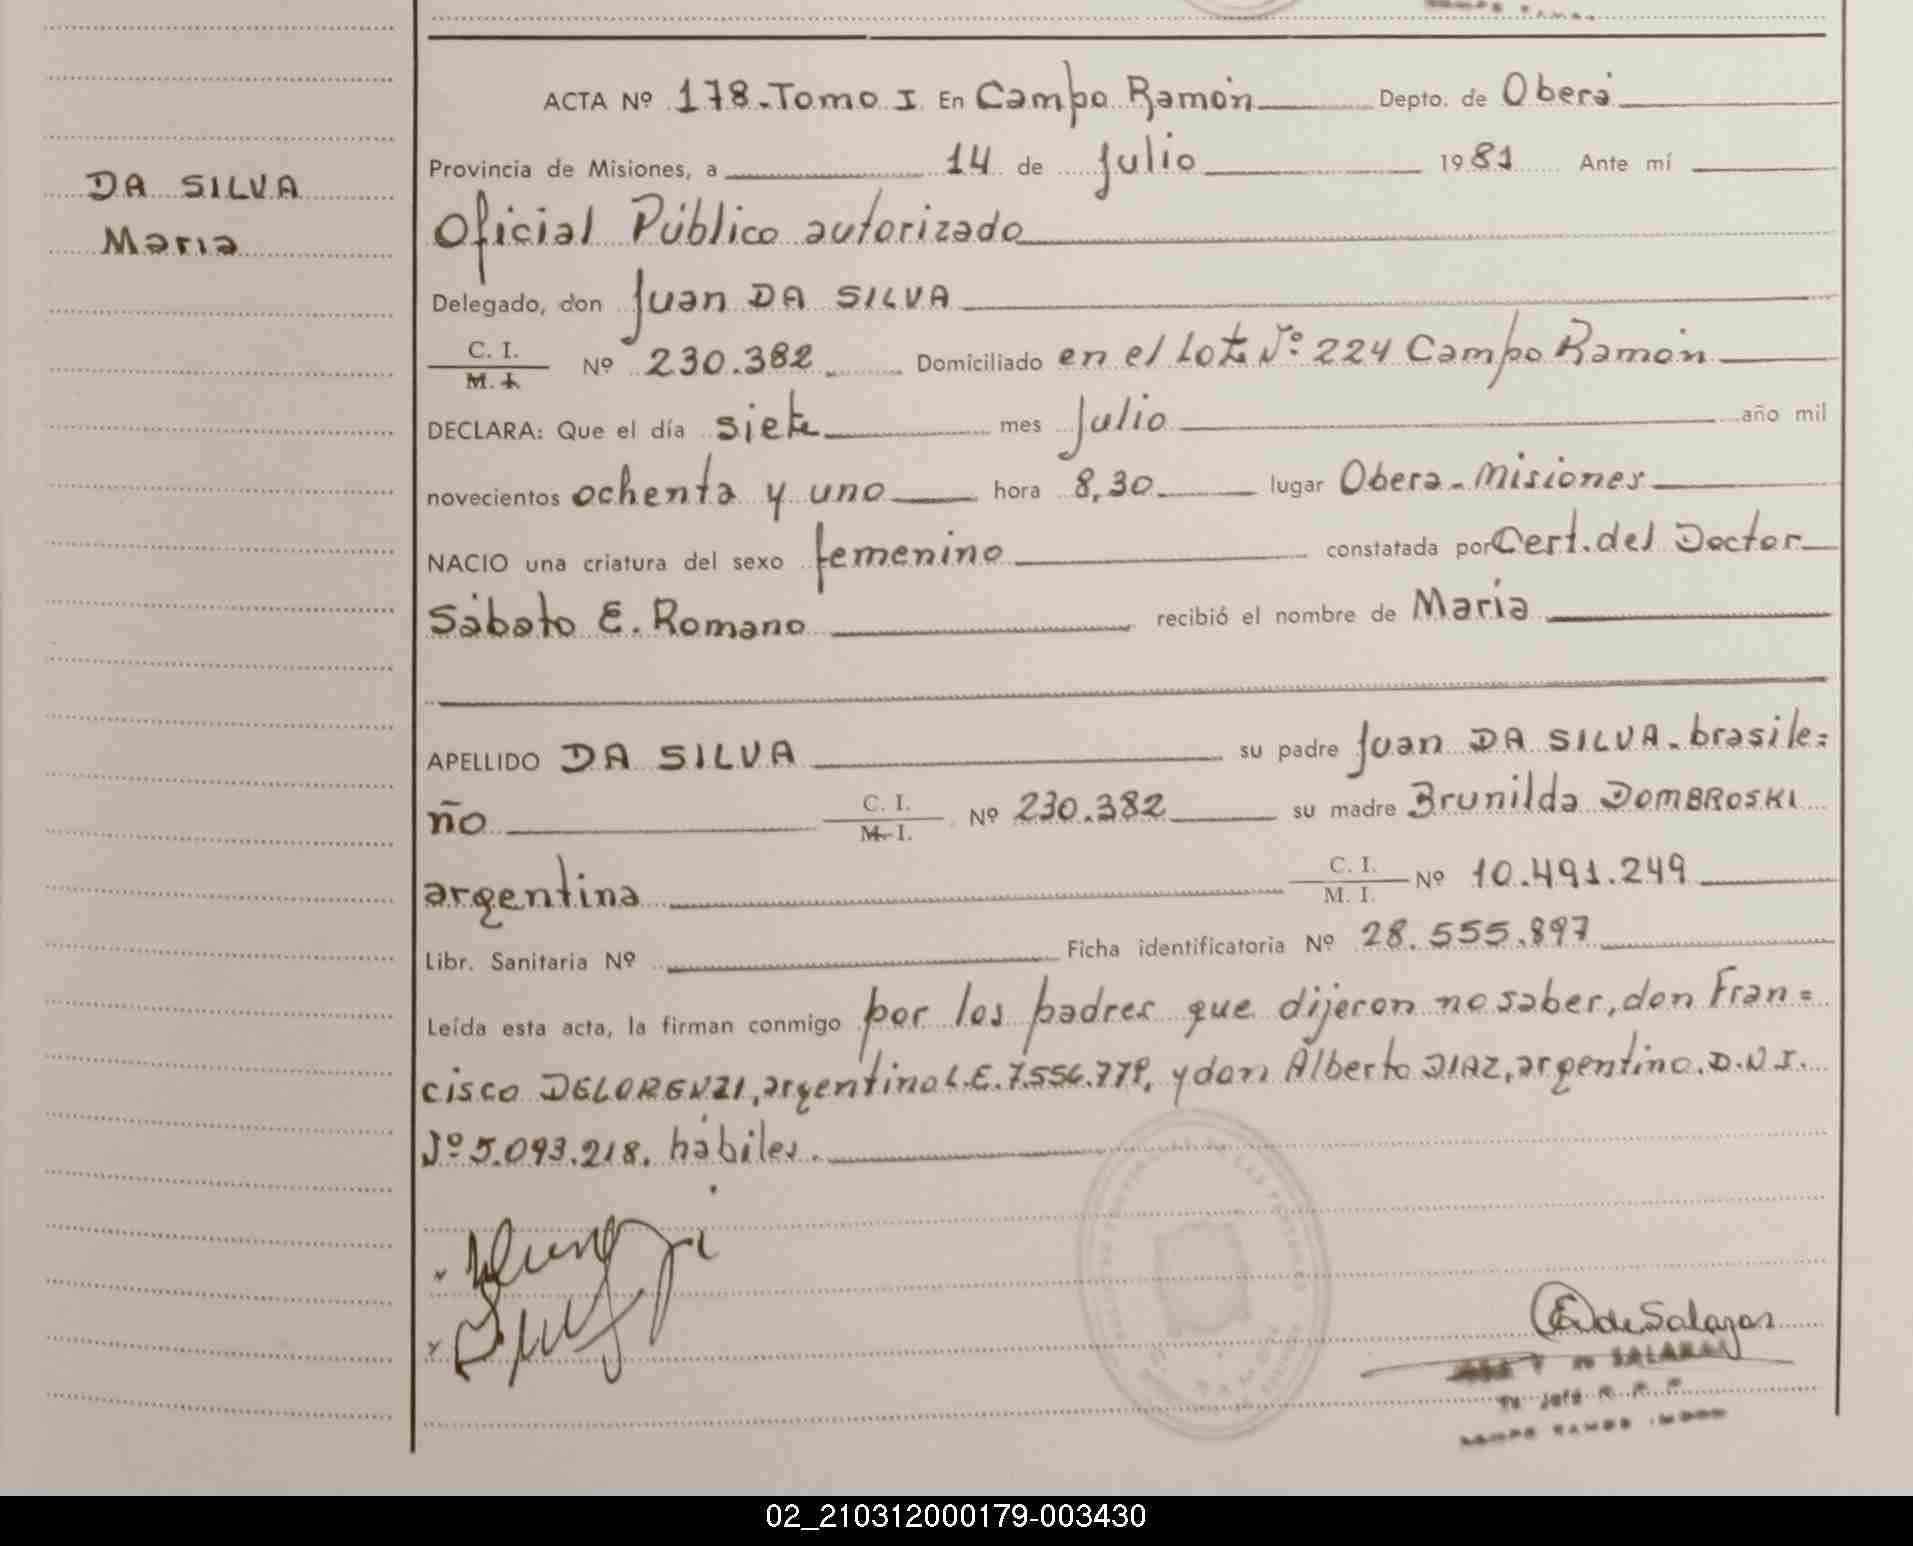 ACTA Nº 178.-Tomo I. En Campo Ramón Depto. de Oberá
Provincia de Misiones, a 14 de Julio 1981 Ante mí
DA SILVA
Maria
Oficial Público autorizado
Delegado, don Juan DA SILVA
C. I.
M. I. Nº 230.382 Domiciliado en el Lote Nº 224 Campo Ramón
DECLARA: Que el día siete mes Julio año mil
novecientos ochenta y uno hora 8,30 lugar Oberá - Misiones
NACIO una criatura del sexo femenino constatada por Cert. del Doctor
Sábato E. Romano recibió el nombre de Maria
APELLIDO DA SILVA su padre Juan DA SILVA - brasile=
ño C. I.
M. I. Nº 230.382 su madre Brunilda DOMBROSKI
argentina C. I.
M. I. Nº 10.491.249
Libr. Sanitaria Nº Ficha identificatoria Nº 28.555.897
Leída esta acta, la firman conmigo por los padres que dijeron no saber, don Fran=
cisco DELORENZI, argentino L.E. y don Alberto DIAZ, argentino. D.N.I.
Nº 5.093.218. hábiles.
de Salazar
CAMPO RAMON
02_210312000179-003430